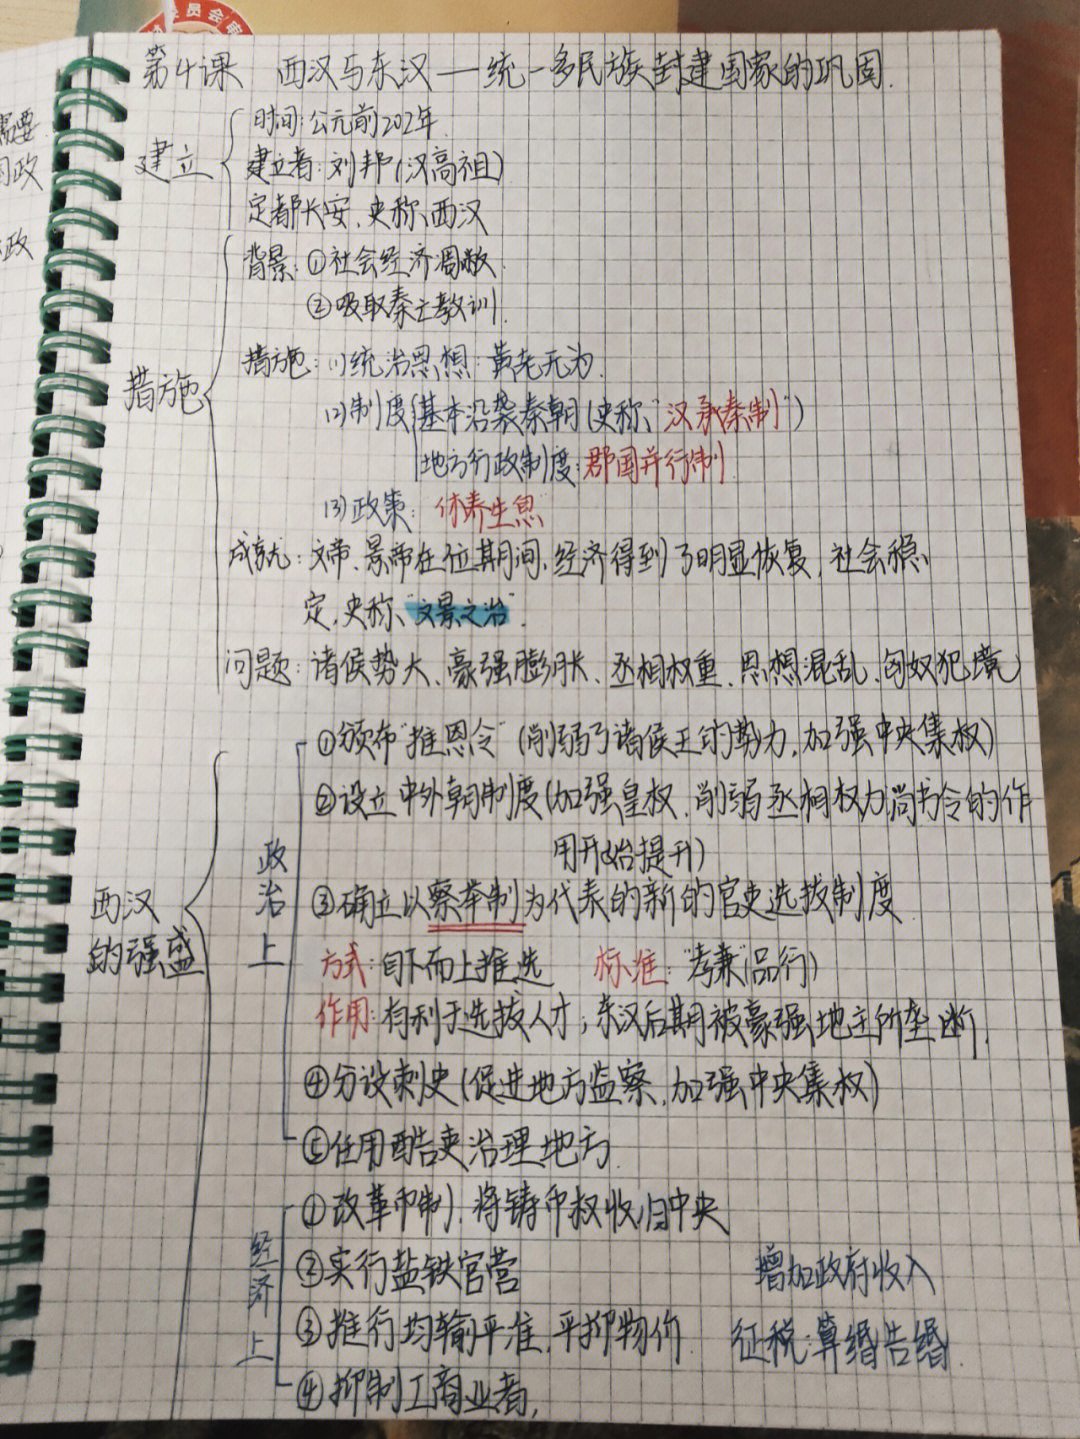 第4课 西汉与东汉——统一多民族封建国家的巩固.
建立
时间:公元前202年.
建立者:刘邦(汉高祖)
定都长安,史称西汉
措施
背景:①社会经济凋敝.
②吸取秦亡教训.
措施:(1)统治思想:黄老无为.
(2)制度 基本沿袭秦朝(史称“汉承秦制”)
地方行政制度:郡国并行制
(3)政策:休养生息
成就:文帝、景帝在位期间,经济得到了明显恢复,社会稳
定,史称“文景之治”.
问题:诸侯势大、豪强膨胀、丞相权重、思想混乱、匈奴犯境
西汉
的强盛
政治上
①颁布“推恩令”(削弱了诸侯王的势力,加强中央集权)
②设立中外朝制度(加强皇权,削弱丞相权力,尚书令的作
用开始提升)
③确立以察举制为代表的新的官吏选拔制度
方式:自下而上推选 标准:“孝廉”(品行)
作用:有利于选拔人才;东汉后期被豪强地主所垄断.
④分设刺史(促进地方监察,加强中央集权)
⑤任用酷吏治理地方.
经济上
①改革币制,将铸币权收归中央
②实行盐铁官营 增加政府收入
③推行均输平准,平抑物价 征税:算缗告缗.
④抑制工商业者,
需要
政
政
员会